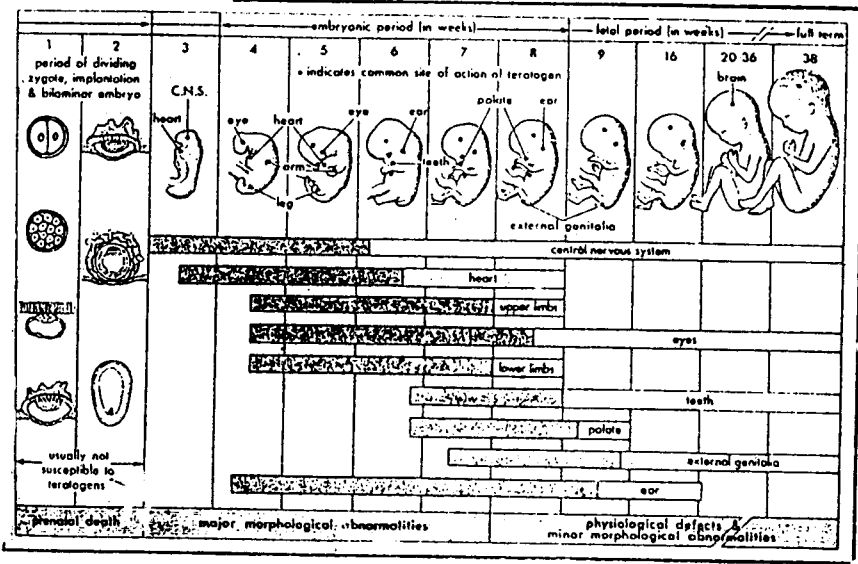 embryonic period (in weeks)
fetal period (in weeks)
full term
1
2
3
4
5
6
7
8
9
16
20-36
38
period of dividing
zygote, implantation
& bilaminar embryo
• indicates common site of action of teratogen
C.N.S.
heart
eye
heart
eye
ear
palate
ear
brain
arm
teeth
leg
external genitalia
central nervous system
heart
upper limbs
eyes
lower limbs
teeth
palate
external genitalia
ear
usually not
susceptible to
teratogens
prenatal death
major morphological abnormalities
physiological defects &
minor morphological abnormalities